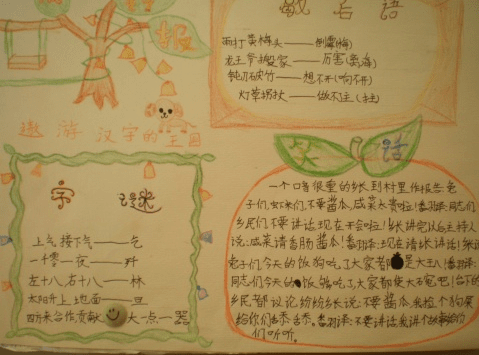 报
歇后语
雨打黄梅头——倒霉(梅)
龙王爷搬家——厉害(离海)
钝刀破竹——想不开(劈不开)
灯草拐杖——做不了主(拄)
遨游汉字的王国
字 谜
上气接下气——乞
一千零一夜——歼
左十八右十八——林
太阳升上地面——旦
四方来合作贡献大一点——器
笑话
一个口音很重的乡长到村里作报告:兔
子们,虾米们,不要酱瓜,咸菜太贵啦!(翻译:同志们
乡民们不要讲话现在开会啦!)乡长讲完以后主持人
说:咸菜请香肠酱瓜!(翻译:现在请乡长讲话!)乡长
兔子们今天的饭狗吃了大家都是大王八!(翻译:
同志们今天的饭够吃了大家都使大碗吧!)台下的
乡民都议论纷纷乡长说:不要酱瓜我捡个狗屎
给你们舔舔。(翻译:不要讲话我讲个故事给你
们听听。